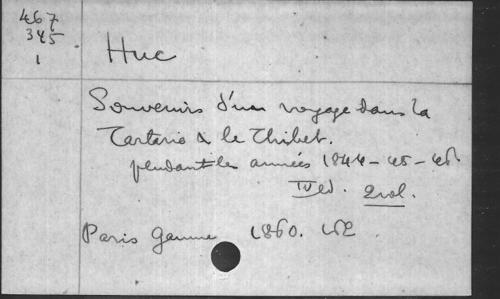 467
345
1
Huc
Souvenirs d'un voyage dans la
Tartarie & le Thibet.
pendant les années 1844-45-46.
IV ed. 2 vol.
Paris Gaume 1860.